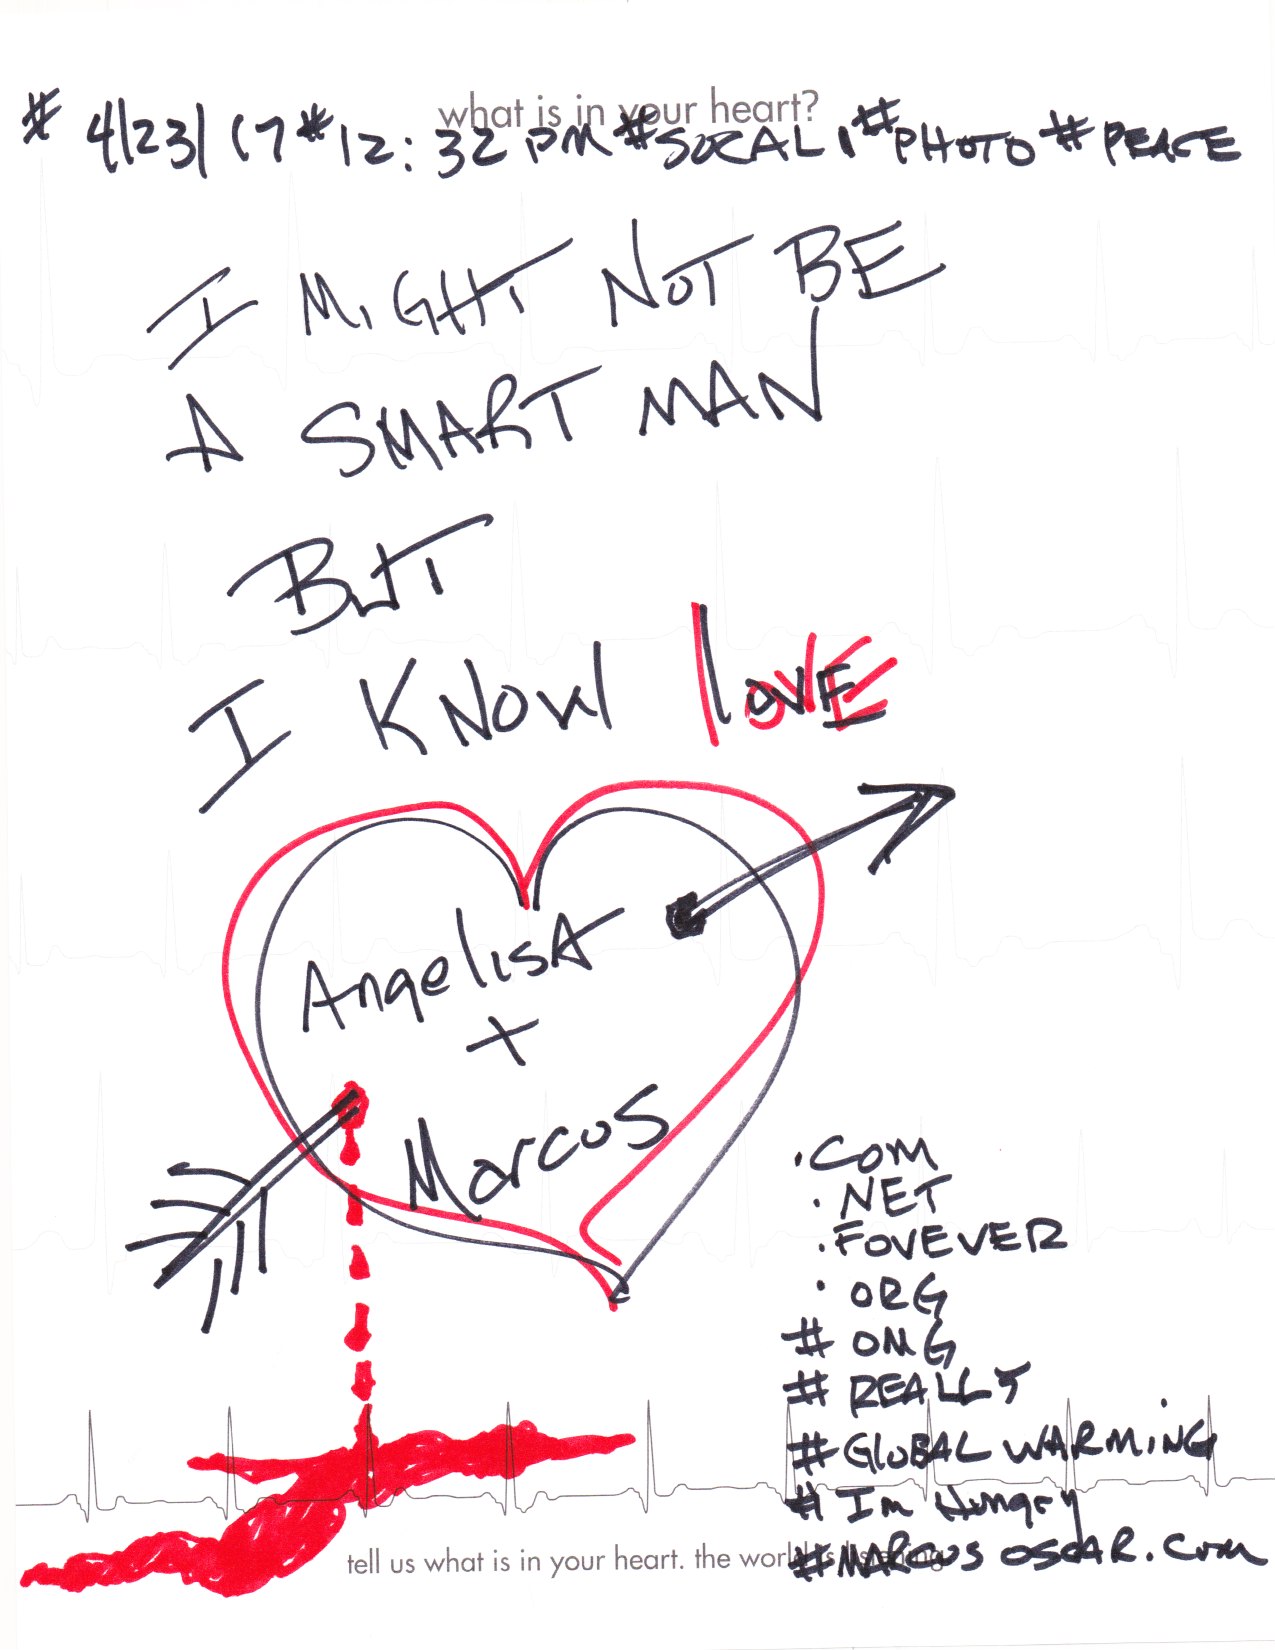 what is in your heart?
# 4/23/17 # 12:32 PM # SOCAL # PHOTO # PEACE
I MIGHT NOT BE
A SMART MAN
BUT
I KNOW lOVE
AngelisA
+
Marcus
.COM
.NET
.FOVEVER
.ORG
# OMG
# REALLY
# GLOBAL WARMING
# Im Hungry
# MARCUS OSCAR.Com
tell us what is in your heart. the world is listening